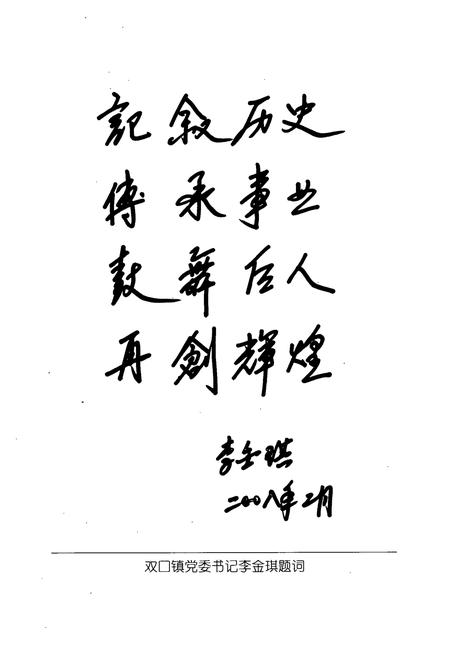 記叙历史
傳承事业
鼓舞后人
再創輝煌
李金琪
二〇〇八年二月
双口镇党委书记李金琪题词